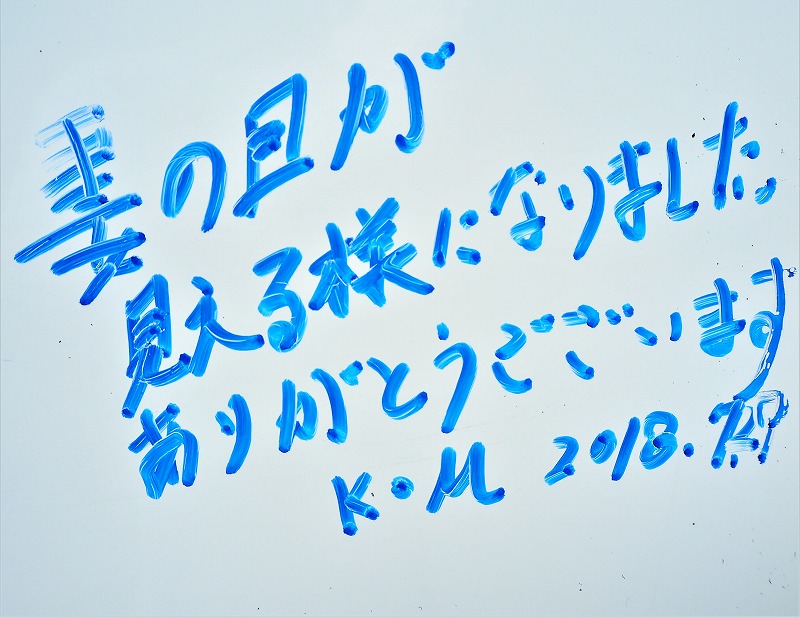 妻の目が
見える様になりました
ありがとうございます
K・M 2018.